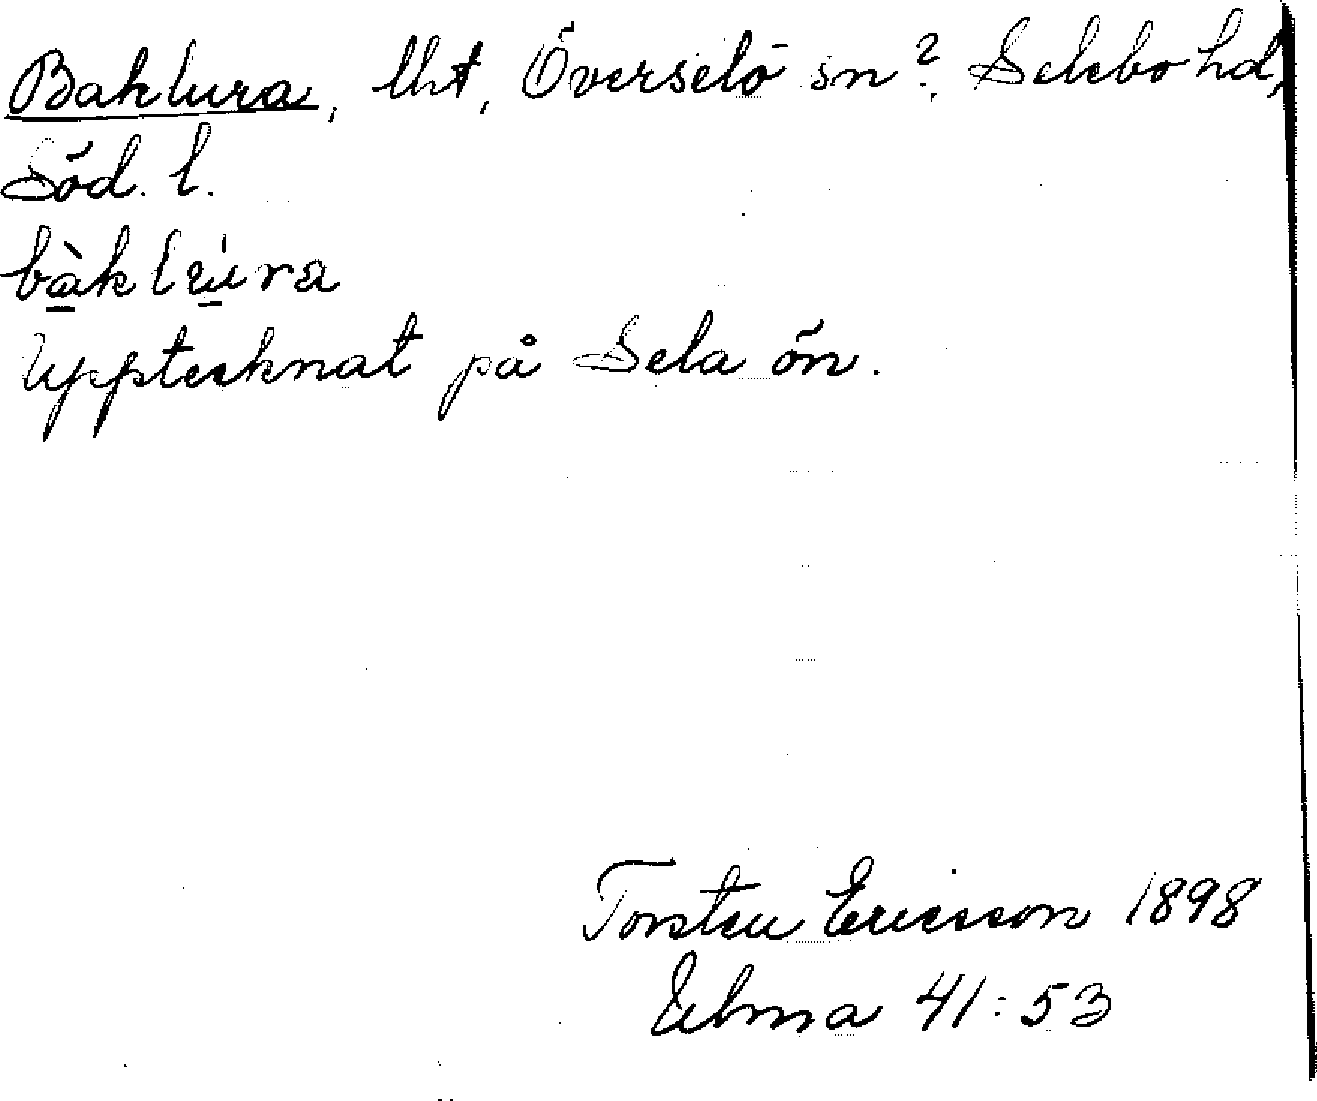 Baklura, lht, Överselö sn?, Selebo hd,
Söd. l.
bàklùra
Upptecknat på Sela ön.
Torsten Ericsson 1898
Elma 41:53